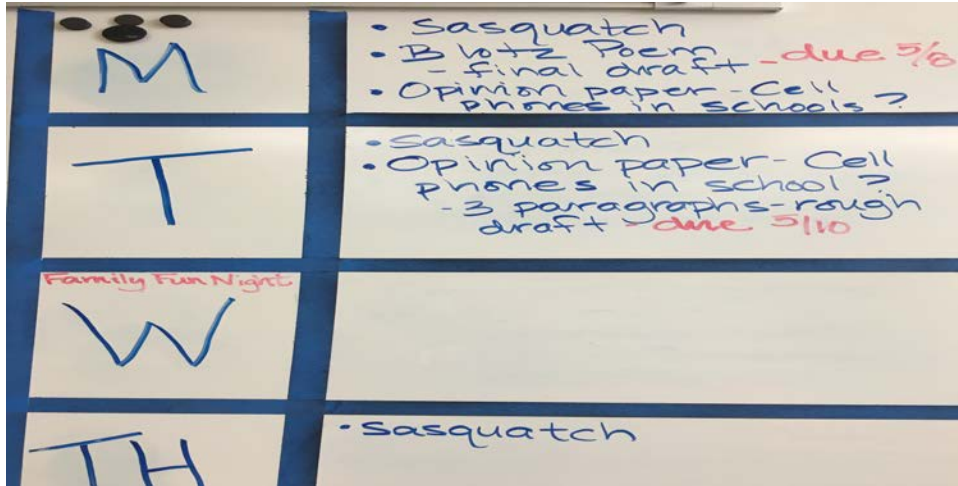 M
• Sasquatch
• Blotz Poem
- final draft - due 5/8
• Opinion paper - Cell
phones in schools?
T
• Sasquatch
• Opinion paper - Cell
phones in school?
- 3 paragraphs - rough
draft - due 5/10
Family Fun Night
W
TH
• Sasquatch